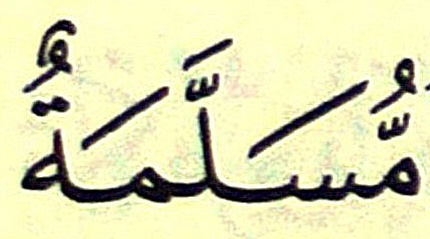 مُّسَلَّمَةٌ